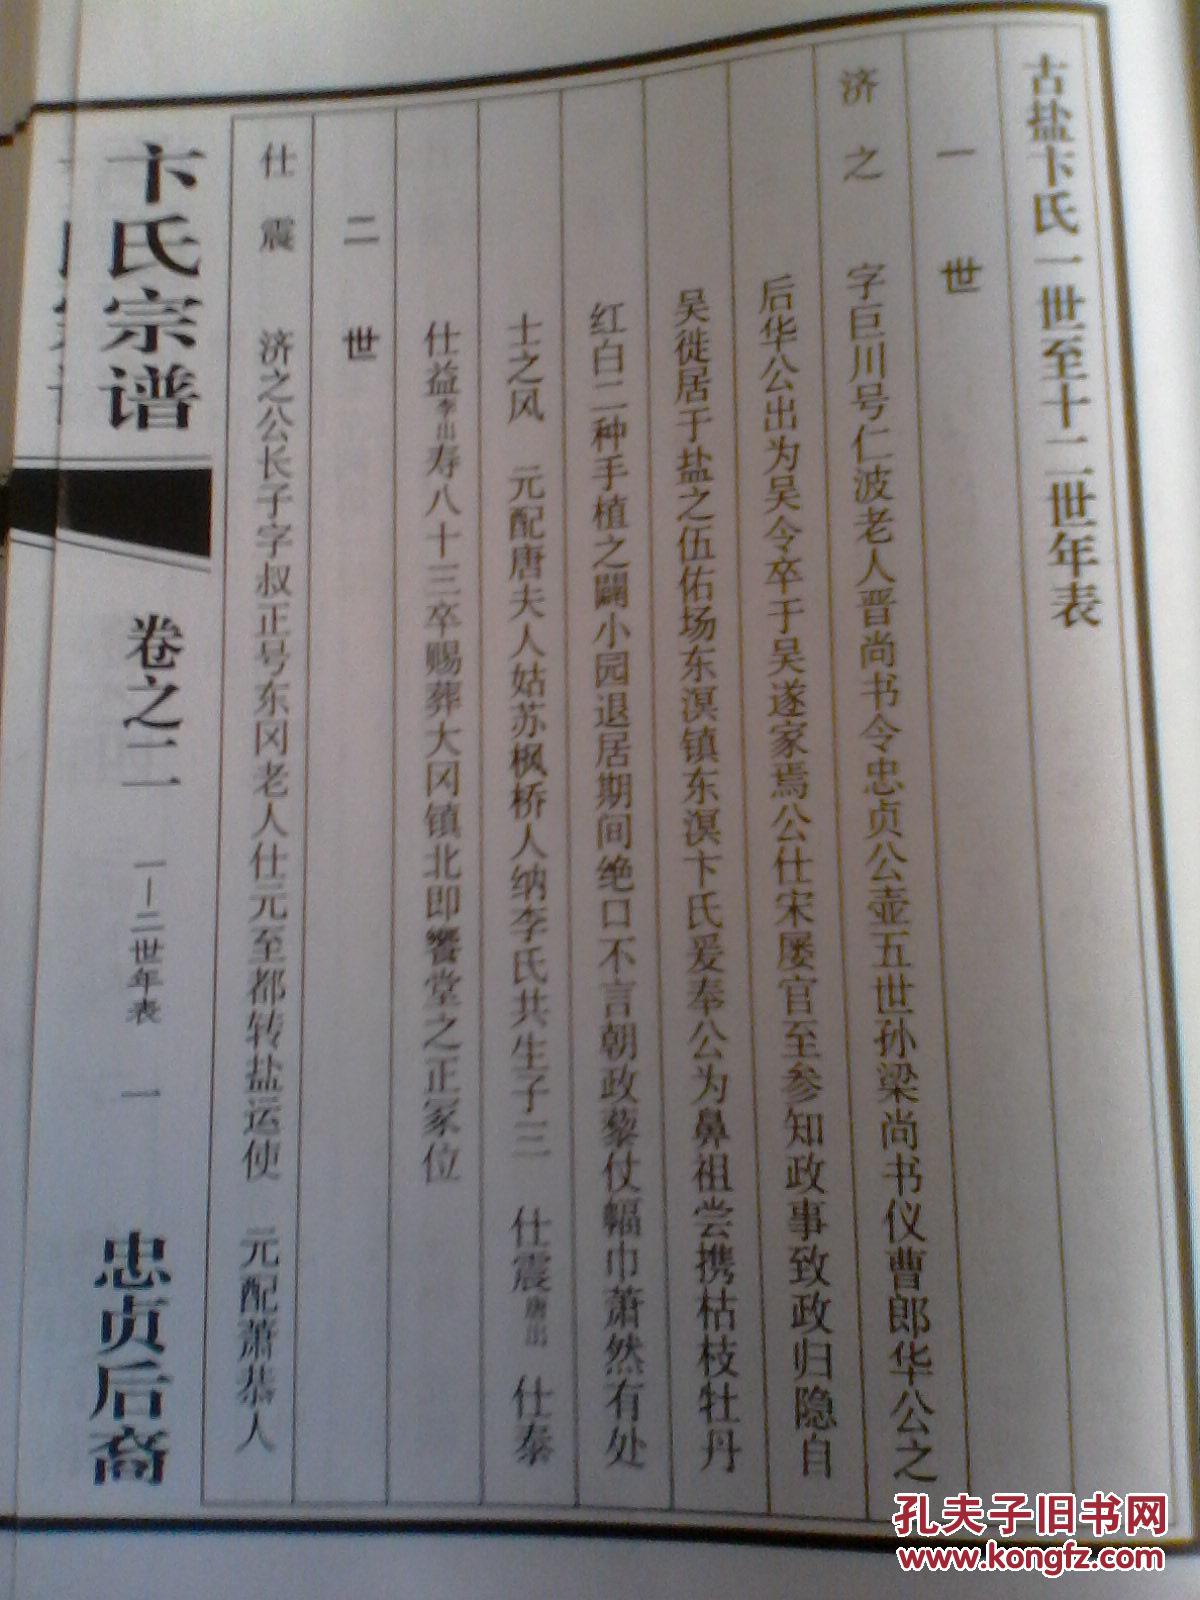 古盐卞氏一世至十二世年表
一世
济之 字巨川号仁波老人晋尚书令忠贞公壶五世孙梁尚书仪曹郎华公之
后华公出为吴令卒于吴遂家焉公仕宋屡官至参知政事致政归隐自
吴徙居于盐之伍佑场东溟镇东溟卞氏爰奉公为鼻祖尝携枯枝牡丹
红白二种手植之闢小园退居期间绝口不言朝政藜仗幅巾萧然有处
士之风 元配唐夫人姑苏枫桥人纳李氏共生子三 仕震唐出 仕泰
仕益李出寿八十三卒赐葬大冈镇北即饗堂之正冢位
二世
仕震 济之公长子字叔正号东冈老人仕元至都转盐运使 元配萧恭人
卞氏宗谱
卷之二
一—二世年表
一
忠贞后裔
孔夫子旧书网
www.kongfz.com